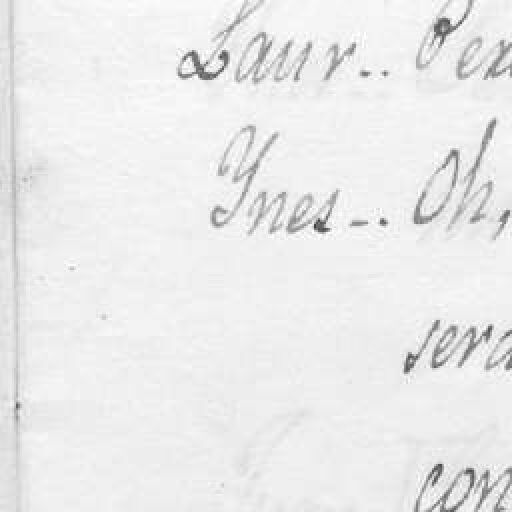 Laur.. Per
Ynes-. Oh,
sera
con